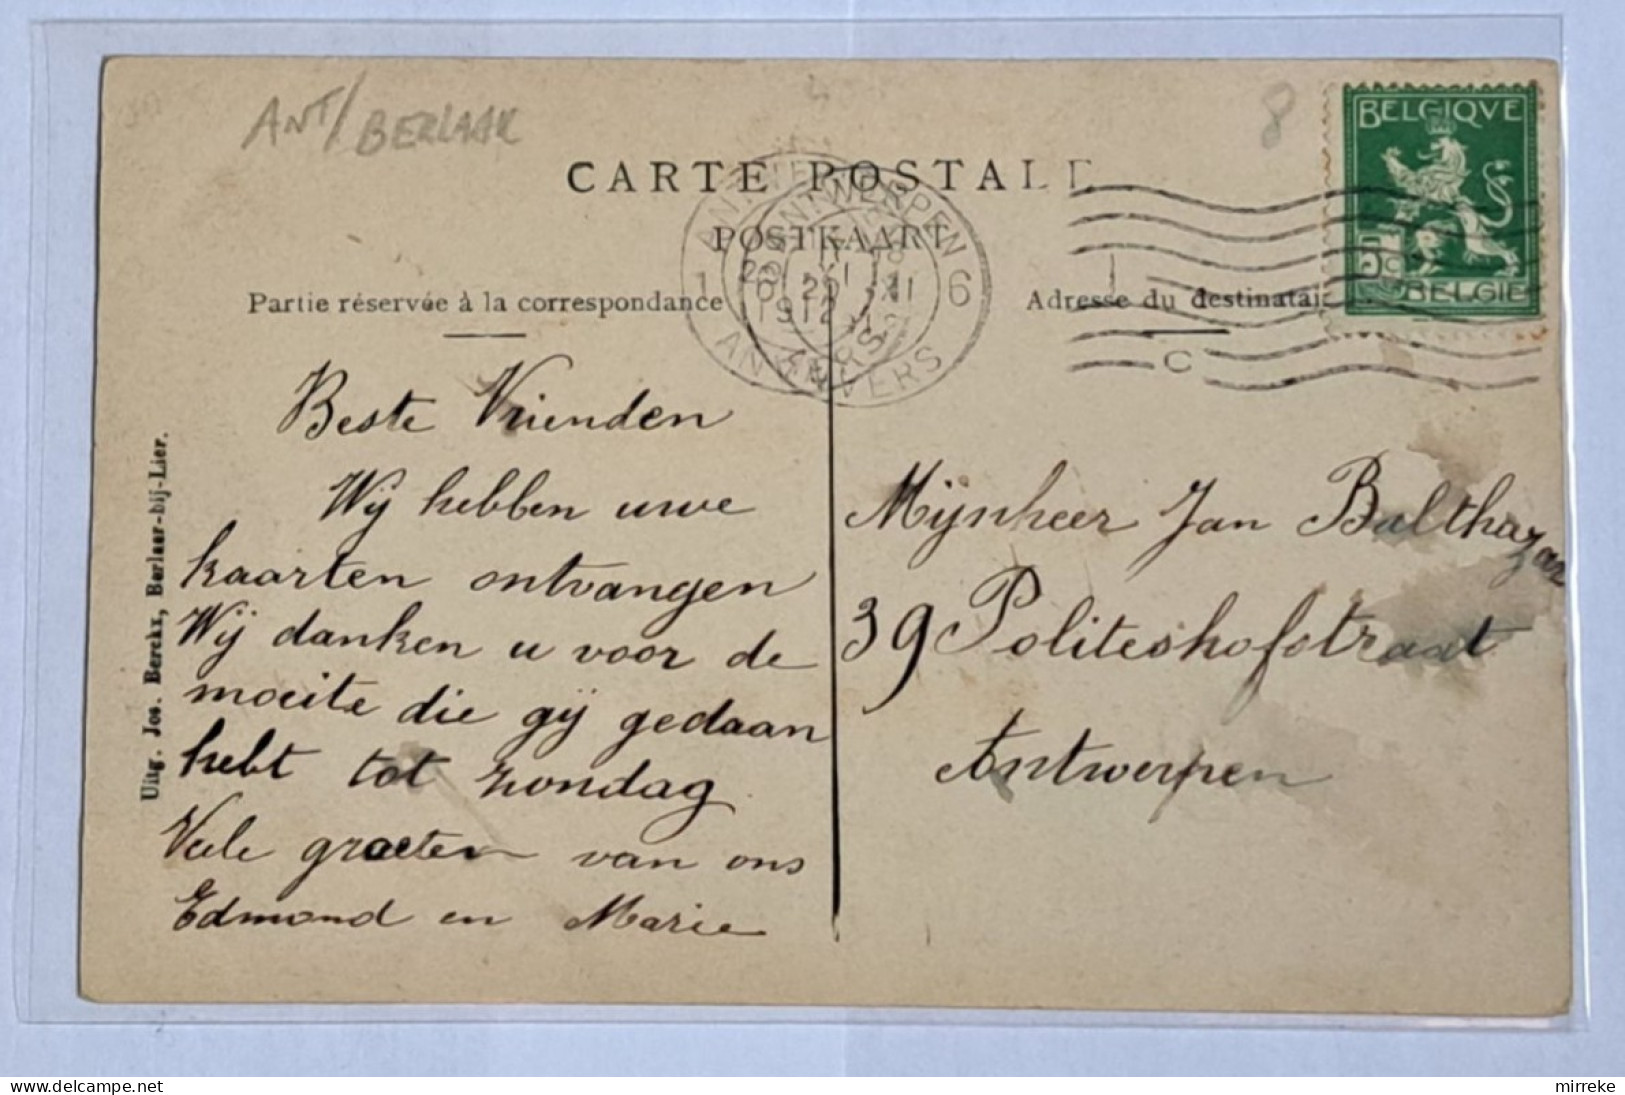 ANT/BERLAAR
8
CARTE POSTALE
POSTKAART
Partie réservée à la correspondance
Adresse du destinatai
BELGIQVE
5c
BELGIE
ANTWERPEN
1 6
1912
ANVERS
C
Uitg. Jos. Berckx, Berlaar-bij-Lier.
Beste Vrienden
Wij hebben uwe
kaarten ontvangen
Wij danken u voor de
moeite die gij gedaan
hebt tot zondag
Vele groeten van ons
Edmond en Marie
Mijnheer Jan Balthazar
39 Politeshofstraat
Antwerpen
delcampe.net
mirreke